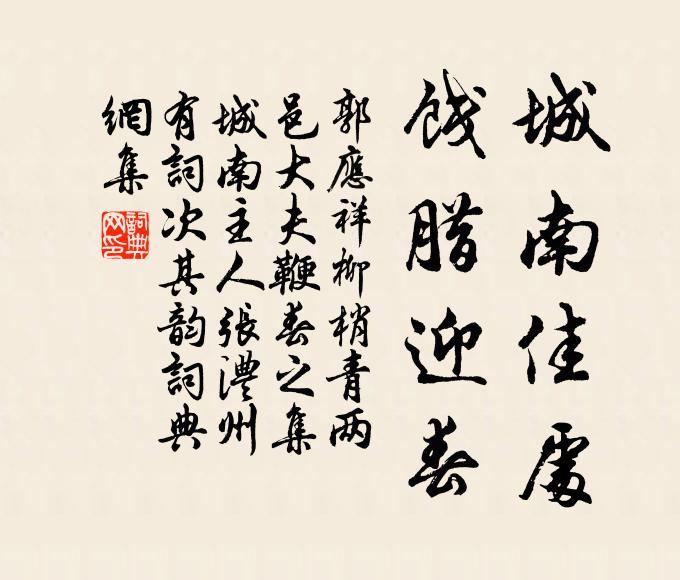 城南佳處
餞腊迎春
郭應祥柳梢青两
邑大夫鞭春之集
城南主人張澧州
有詞次其韵詞典
網集
詞典
网印